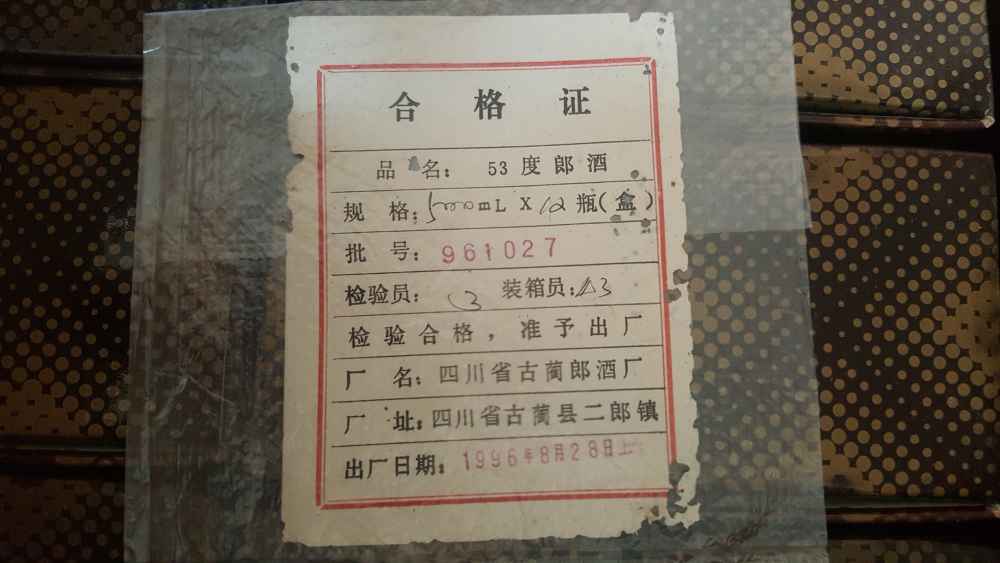 合格证
品名：53度郎酒
规格：500mL X 12瓶(盒)
批号：961027
检验员：3 装箱员：3
检验合格，准予出厂
厂名：四川省古蔺郎酒厂
厂址：四川省古蔺县二郎镇
出厂日期：1996年8月28日上